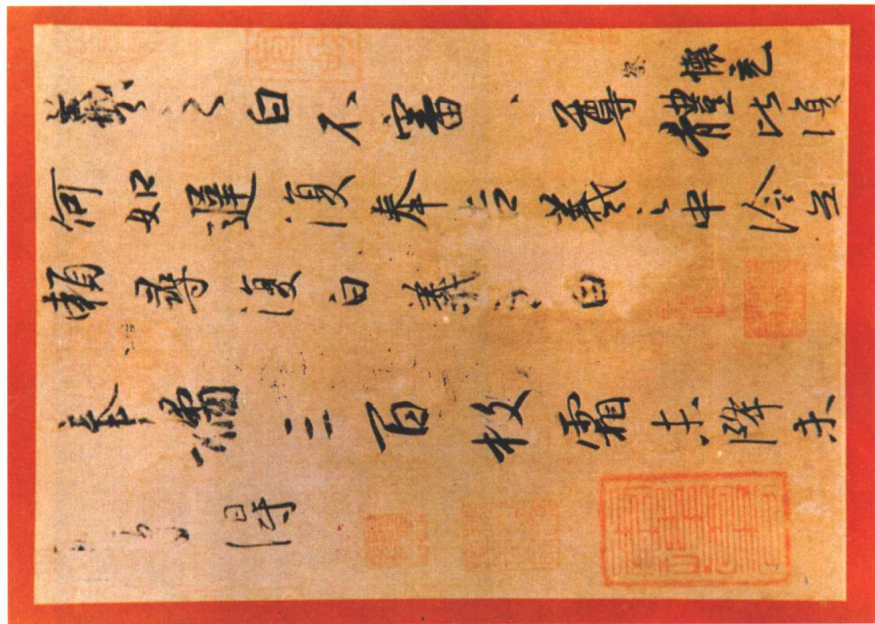 察
懷充
羲之白不審尊體比復
何如遲復奉告羲之中冷無
賴尋復白羲之白
奉橘三百枚霜未降未
可多得